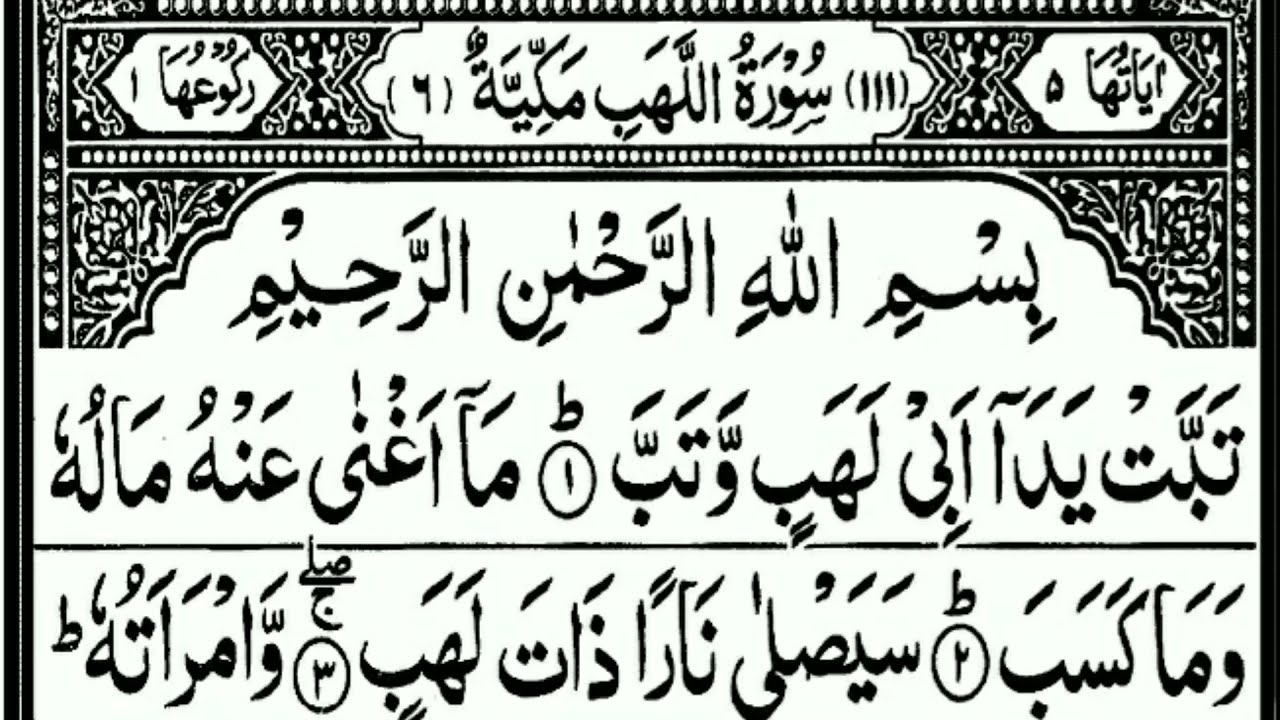 اٰيَاتُهَا ٥ (١١١) سُوْرَةُ اللَّهَبِ مَكِّيَّةٌ (٦) رُكُوْعُهَا ١
بِسْمِ اللّٰهِ الرَّحْمٰنِ الرَّحِيْمِ
تَبَّتْ يَدَآ اَبِيْ لَهَبٍ وَّتَبَّ ؕ ١ مَآ اَغْنٰى عَنْهُ مَالُهٗ
وَمَا كَسَبَ ؕ ٢ سَيَصْلٰى نَارًا ذَاتَ لَهَبٍ ۖۚ ٣ وَّامْرَاَتُهٗ ؕ